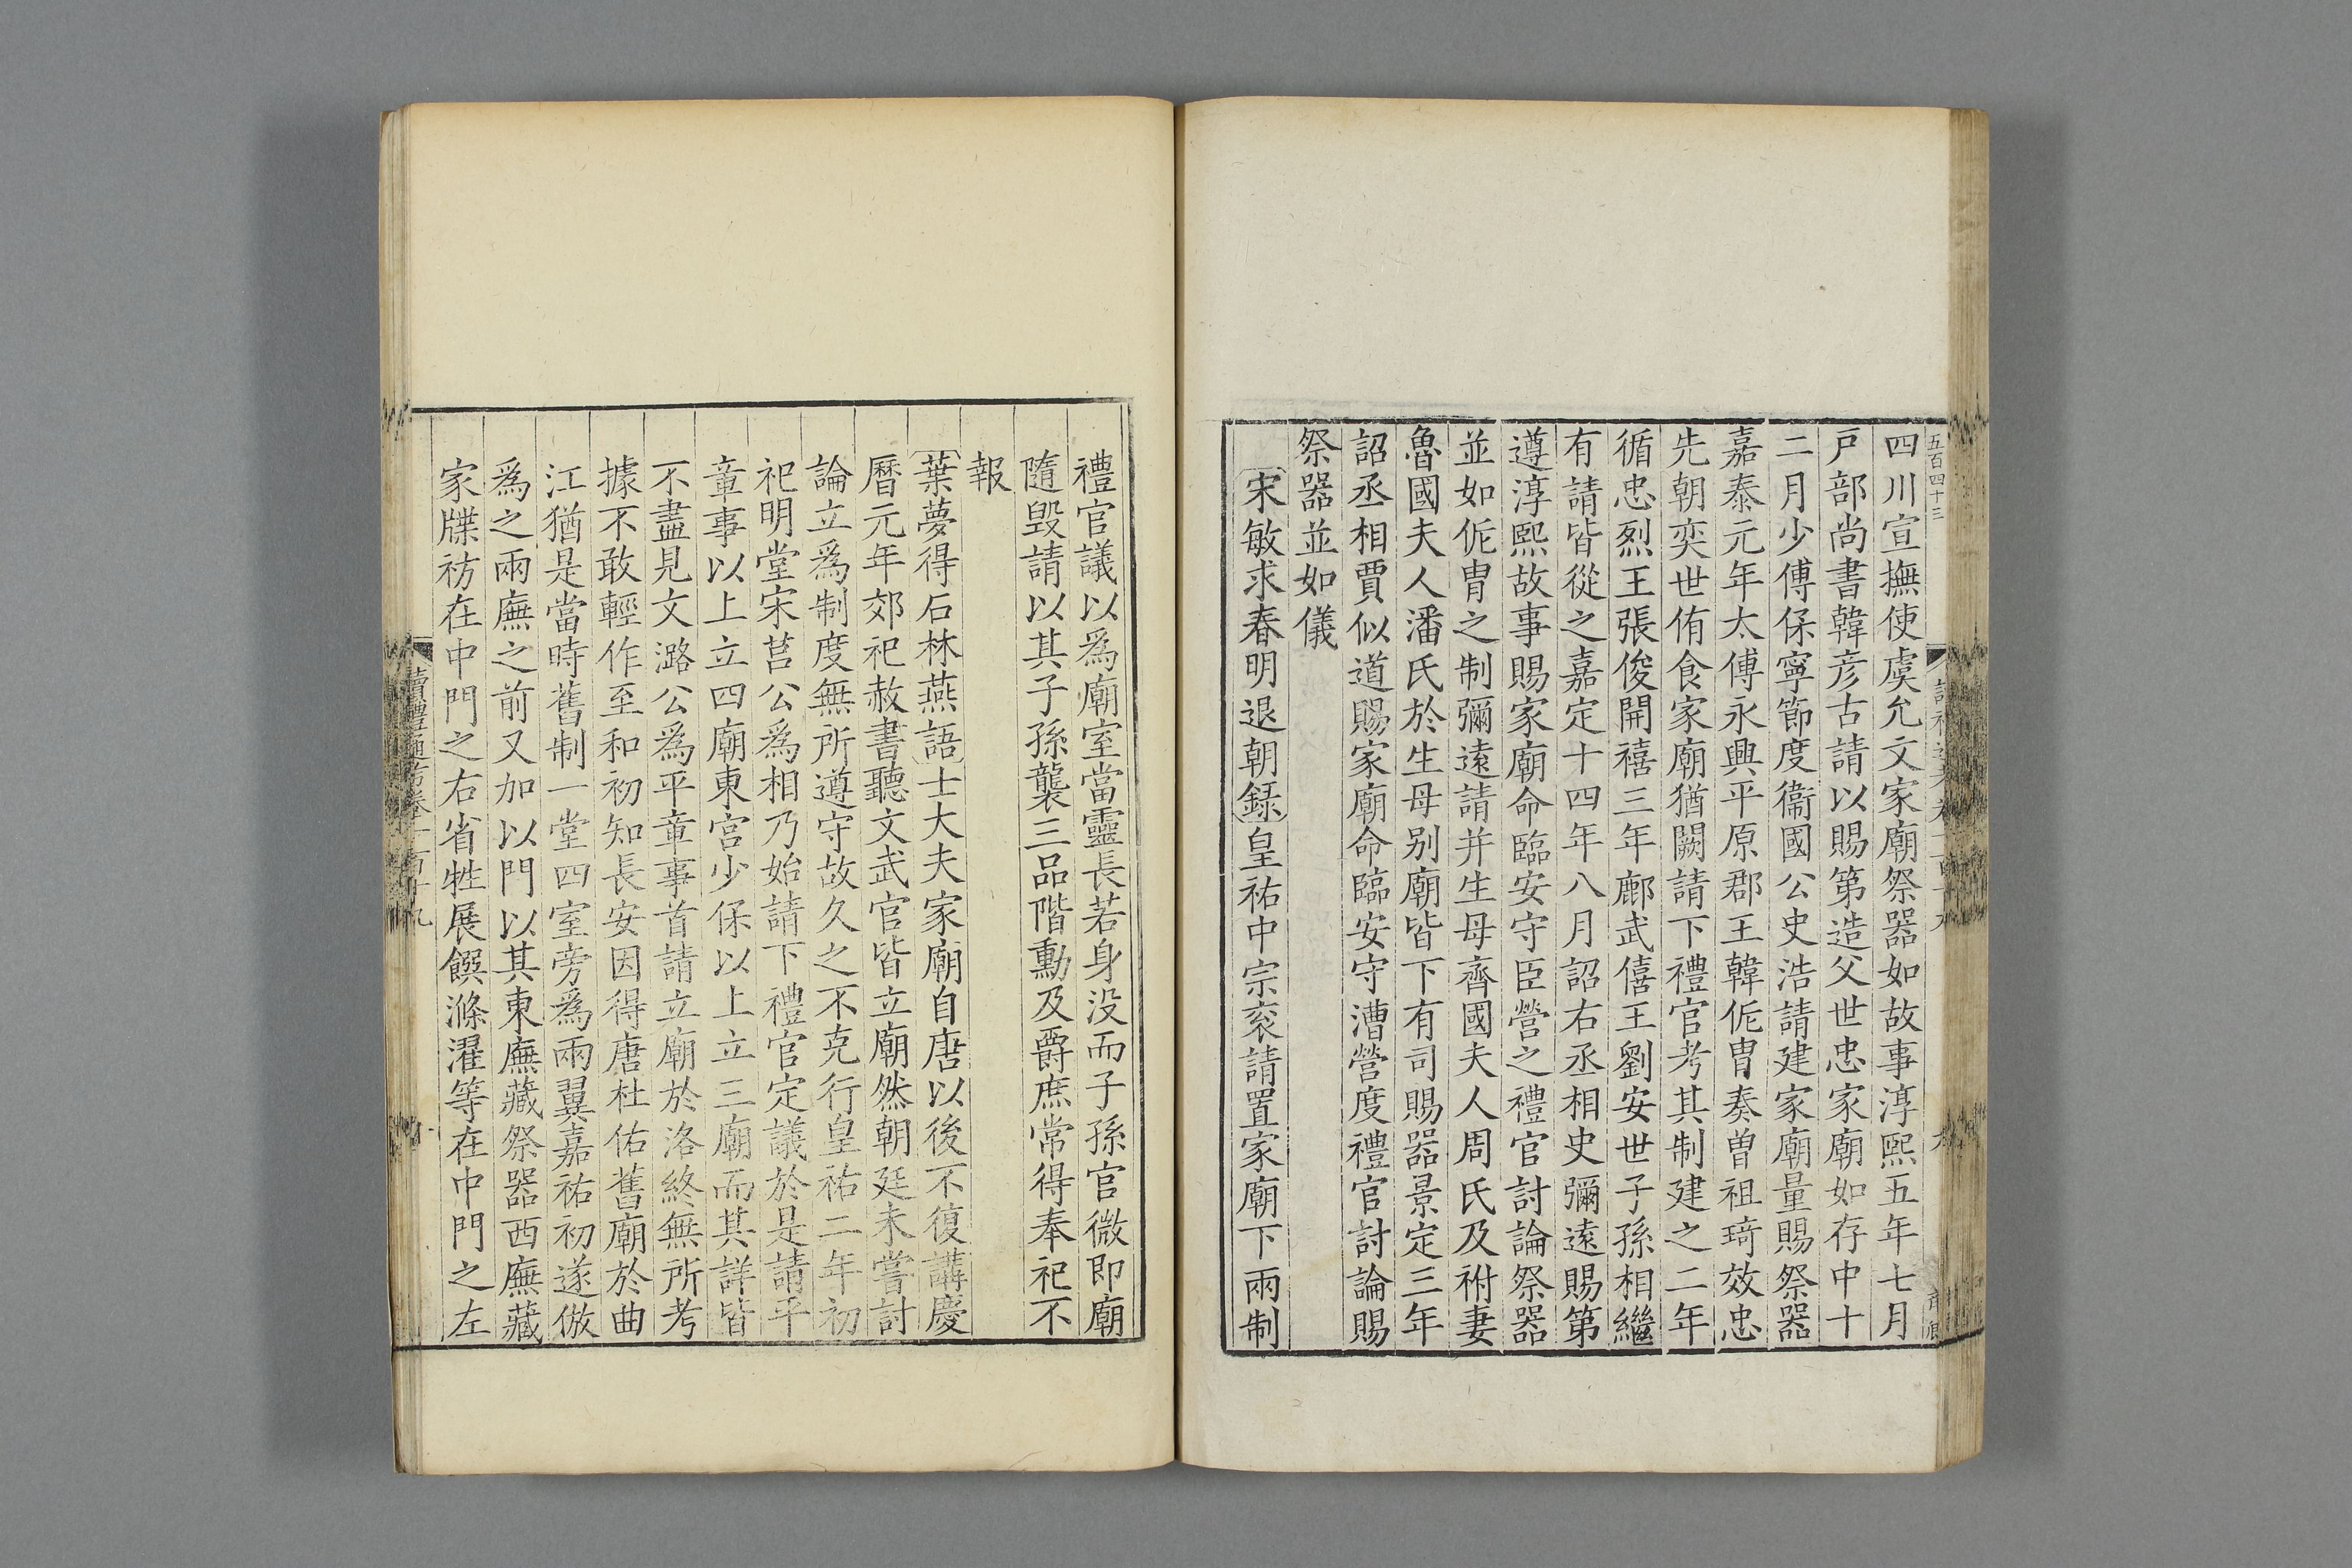 五百四十三
四川宣撫使虞允文家廟祭器如故事淳熙五年七月
戸部尚書韓彦古請以賜第造父世忠家廟如存中十
二月少傅保寧節度衞國公史浩請建家廟量賜祭器
嘉泰元年太傅永興平原郡王韓侂胄奏曾祖琦效忠
先朝奕世侑食家廟猶闕請下禮官考其制建之二年
循忠烈王張俊開禧三年鄜武僖王劉安世子孫相繼
有請皆從之嘉定十四年八月詔右丞相史彌遠賜第
遵淳熙故事賜家廟命臨安守臣營之禮官討論祭器
並如侂胄之制彌遠請并生母齊國夫人周氏及祔妻
魯國夫人潘氏於生母别廟皆下有司賜器景定三年
詔丞相賈似道賜家廟命臨安守漕營度禮官討論賜
祭器並如儀
宋敏求春明退朝錄皇祐中宗衮請置家廟下兩制
禮官議以爲廟室當靈長若身没而子孫官微即廟
隨毁請以其子孫襲三品階勳及爵庶常得奉祀不
報
葉夢得石林燕語士大夫家廟自唐以後不復講慶
曆元年郊祀赦書聽文武官皆立廟然朝廷未嘗討
論立爲制度無所遵守故久之不克行皇祐二年初
祀明堂宋莒公爲相乃始請下禮官定議於是請平
章事以上立四廟東宫少保以上立三廟而其詳皆
不盡見文潞公爲平章事首請立廟於洛終無所考
據不敢輕作至和初知長安因得唐杜佑舊廟於曲
江猶是當時舊制一堂四室旁爲兩翼嘉祐初遂倣
爲之兩廡之前又加以門以其東廡藏祭器西廡藏
家牒祊在中門之右省牲展饌滌濯等在中門之左
讀禮通考卷一百十九